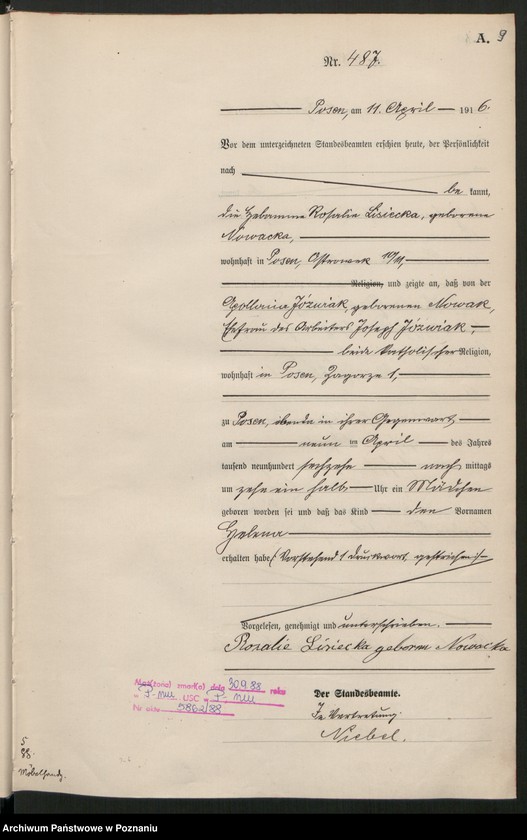 A. 9
Nr. 487.
Posen, am 11. April 1916
Vor dem unterzeichneten Standesbeamten erschien heute, der Persönlichkeit
nach
be kannt,
die Hebamme Rosalie Lisiecka, geborene
Nowacka,
wohnhaft in Posen, Ostrowek 10/11,
Religion, und zeigte an, daß von der
Apollonia Józwiak, geborenen Nowak,
Ehefrau des Arbeiters Joseph Józwiak,
beide katholischer Religion,
wohnhaft in Posen, Zagorze 1,
zu Posen, ebenda in ihrer Gegenwart
am neun ten April des Jahres
tausend neunhundert sechzehn nach mittags
um zehn ein halb Uhr ein Mädchen
geboren worden sei und daß das Kind den Vornamen
Helena
erhalten habe. (Vorstehend 1 Druckwort gestrichen.)
Vorgelesen, genehmigt und unterschrieben.
Rosalie Lisiecka geborene Nowacka
Der Standesbeamte.
In Vertretung
Niebel.
zmarł(a) dnia 30.9.88 roku
w P-niu USC w P-niu
Nr aktu 5862/88
5
88.
Archiwum Państwowe w Poznaniu